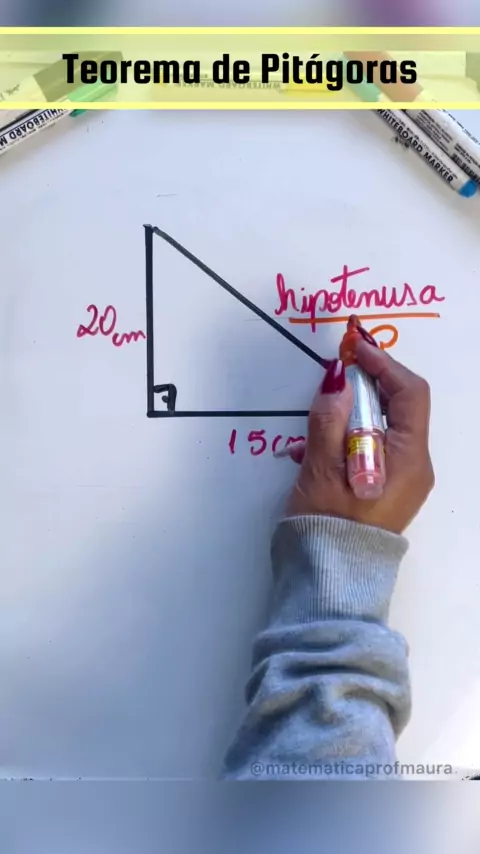 Teorema de Pitágoras
WHITEBOARD MARKER
WHITEBOARD MARKER
hipotenusa
20cm
15cm
@matematicaprofmaura